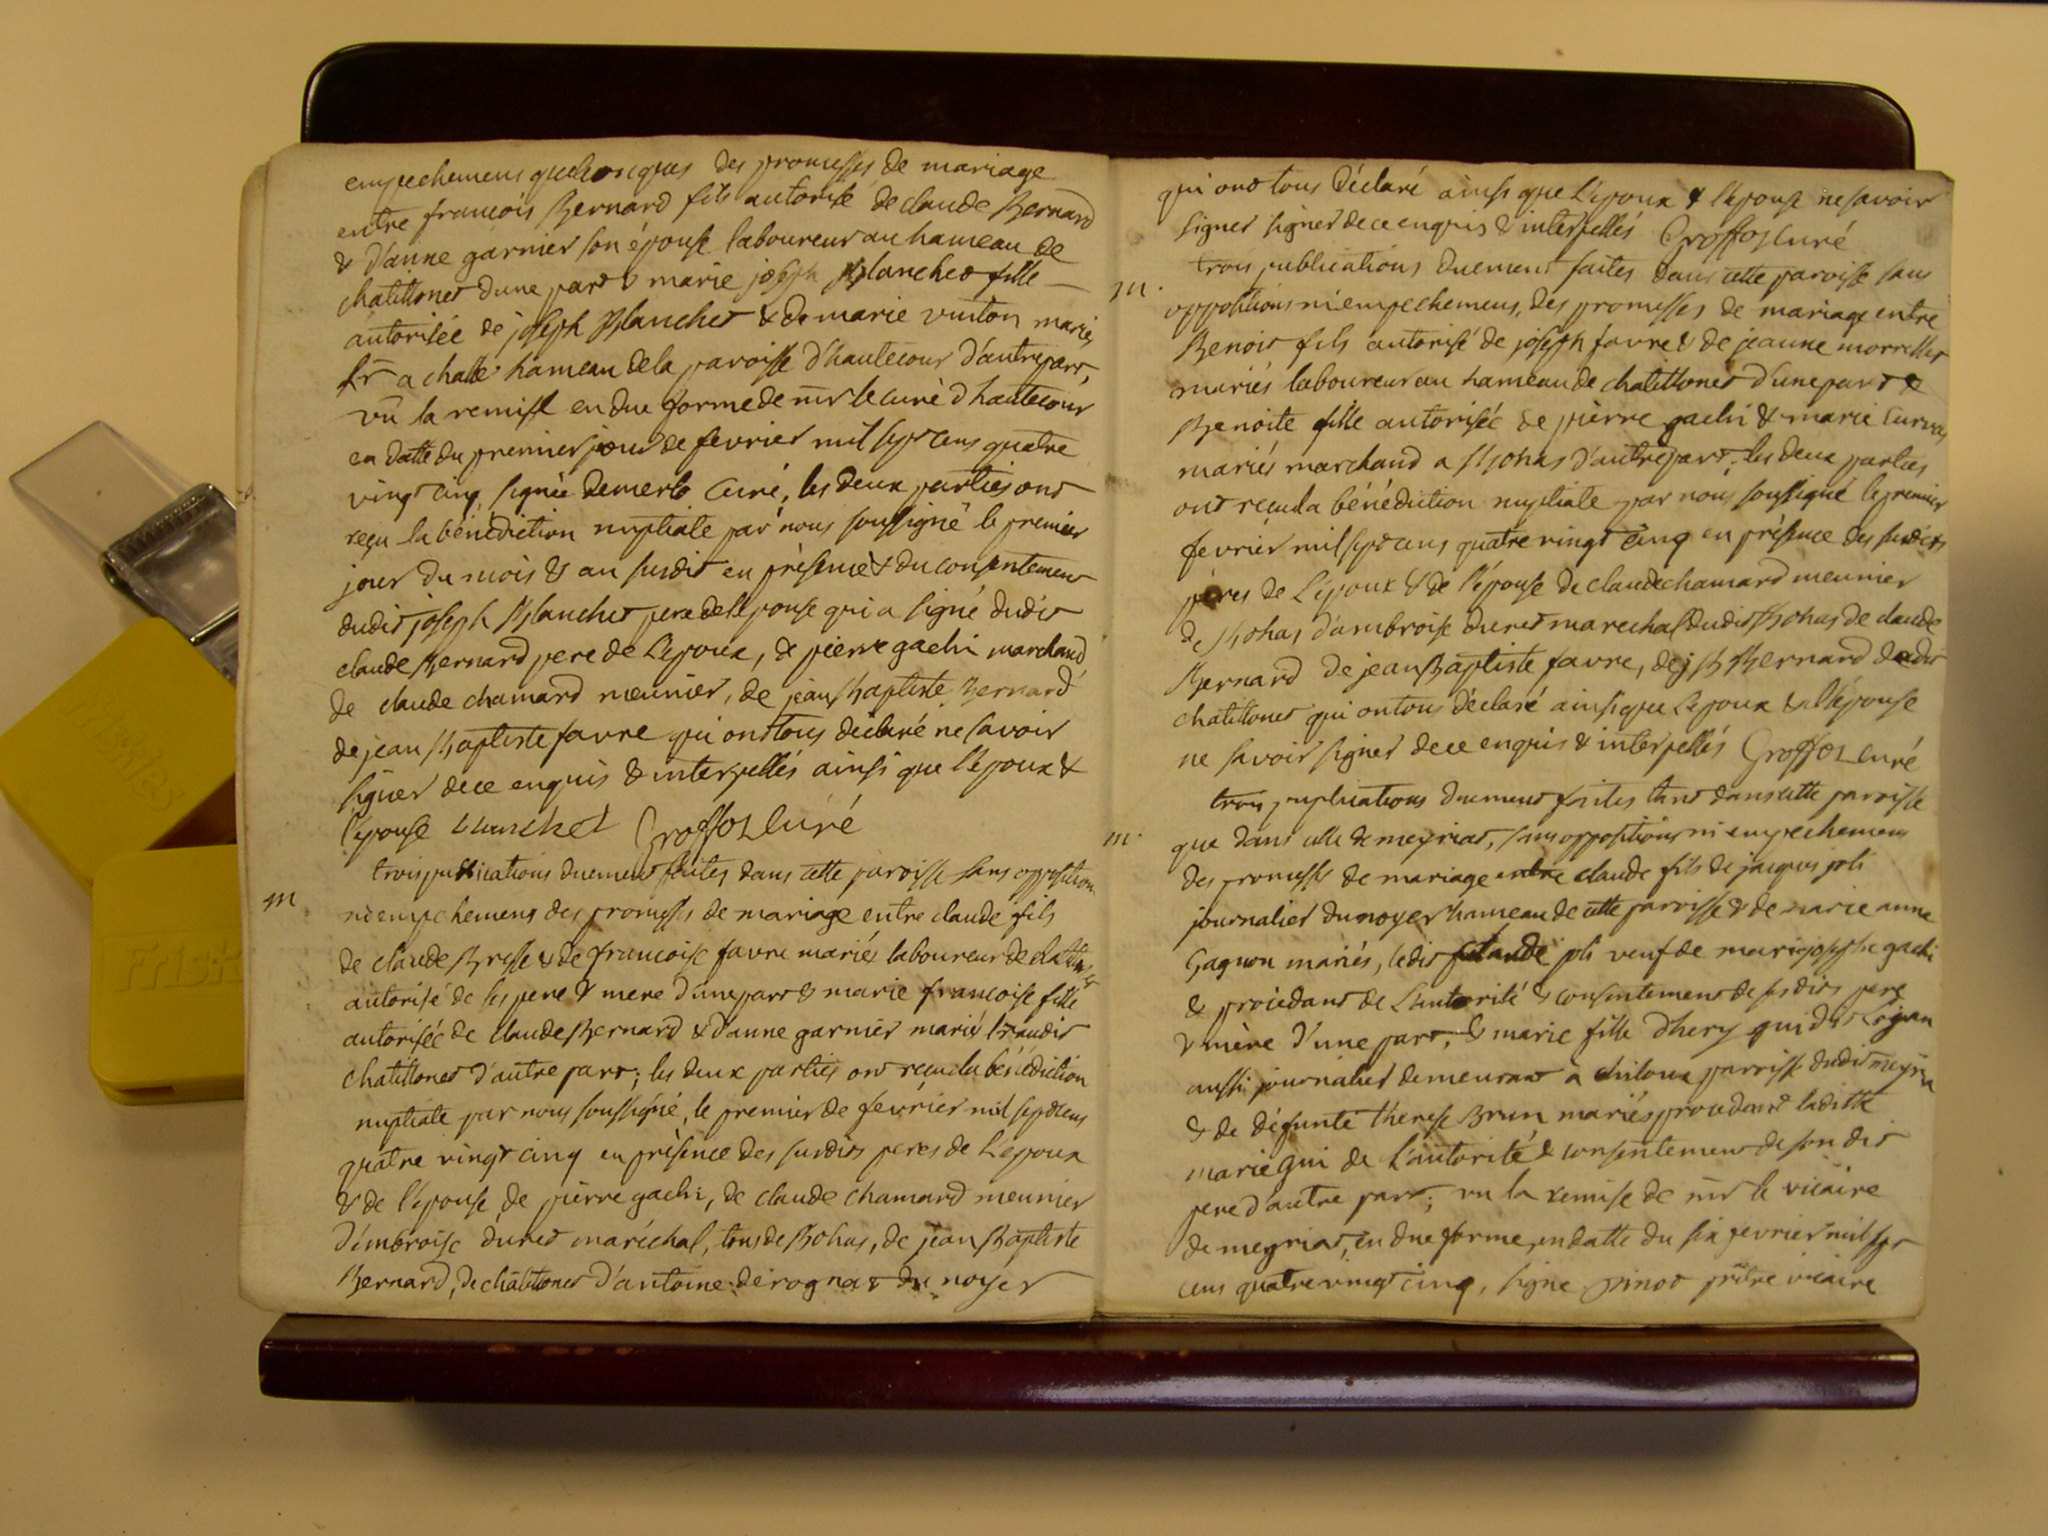 empechemens quelconques des promesses de mariage
entre francois Bernard fils autorisé de claude Bernard
& d'anne garnier son épouse laboureur au hameau de
chatillonet dune part & marie joseph Blanchet fille
autorisée de joseph Blanchet & de marie vuiton mariés
a challe hameau de la paroisse d'hautecour d'autre part,
vû la remise en due forme de mr le curé d'hautecour
en datte du premier jour de fevrier mil sept cens quatre
vingt cinq signée demerlo curé, les deux parties ont
reçu la bénédiction nuptiale par nous soussigné le premier
jour du mois & an susdit en présence & du consentement
dudit joseph Blanchet pere de l'epouse qui a signé dudit
claude Bernard pere de l'epoux, de pierre gachi marchand
de claude chamard meunier, de jean Baptiste Bernard
de jean Baptiste favre qui ont tous déclaré ne savoir
signer de ce enquis & interpellés ainsi que l'epoux &
l'epouse blanchet Groffoz curé
trois publications duement faites dans cette paroisse sans opposition
m
ni empechemens des promesses de mariage entre claude fils
de claude Bresse & de francoise favre mariés laboureur de
autorisé de ses pere & mere d'une part & marie francoise fille
autorisée de claude Bernard & d'anne garnier mariés dudit
chatillonet d'autre part; les deux parties ont reçu la bénédiction
nuptiale par nous soussigné, le premier de fevrier mil sept cens
quatre vingt cinq en présence des susdits peres de l'epoux
& de l'épouse de pierre gachi, de claude chamard meunier
d'embroise duret maréchal, tous de Bohas, de jean Baptiste
Bernard, de châtillonet d'antoine derognat du noyer
qui ont tous déclaré ainsi que l'epoux & l'epouse ne savoir
signer signer de ce enquis & interpellés Groffoz curé
trois publications duement faites dans cette paroisse sans
m.
oppositions ni empechemens, des promesses de mariage entre
Benoit fils autorisé de joseph favre & de jeanne morrellet
mariés laboureur au hameau de chatillonet d'une part &
Benoite fille autorisée de pierre gachi & marie
mariés marchand a Bohas d'autre part; les deux parties
ont reçu la bénédiction nuptiale par nous soussigné le premier
fevrier mil sept cens quatre vingt cinq en présence des susdits
pères de l'epoux & de l'épouse de claude chamard meunier
de Bohas d'ambroise duret marechal dudit Bohas de claude
Bernard de jean Baptiste favre, de j B Bernard dudit
chatillonet qui on tous déclaré ainsi que l'epoux & l'épouse
ne savoir signer de ce enquis & interpellés Groffoz curé
trois publications duement faites tant dans cette paroisse
m.
que dans celle de meyriat, sans oppositions ni empechemens
des promesses de mariage entre claude fils de jacques joli
journalier du noyer hameau de cette paroisse & de marie anne
Gagnon mariés, ledit claude joli veuf de marie josephe gachi
& procedant de l'autorité & consentement de ses dits pere
& mère d'une part; & marie fille d'hery gui dit
aussi journalier demeurant à chiloux paroisse dudit meyriat
& de défunte therese Brun mariés procedant laditte
marie gui de l'autorité & consentement de son dit
pere d'autre part; vu la remise de mr le vicaire
de meyriat, en due forme, en datte du six fevrier mil sept
cens quatre vingt cinq, signe pinot prêtre vicaire